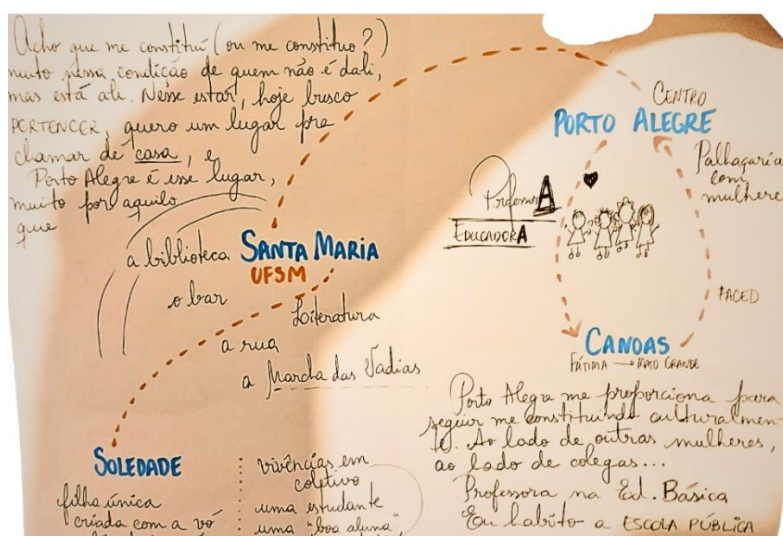 Acho que me constituí (ou me constituo?)
muito nessa condição de quem não é dali,
mas está ali. Nesse estar, hoje busco
PERTENCER, quero um lugar pra
chamar de casa, e
Porto Alegre é esse lugar,
muito por aquilo
que
a biblioteca
SANTA MARIA
UFSM
o bar
Literatura
a rua
a Marcha das Vadias
SOLEDADE
filha única
criada com a vó
vivências em
coletivo
uma estudante
uma "boa aluna",
CENTRO
PORTO ALEGRE
Palhaçaria
com
mulhere
ProfessorA
EDUCADORA
FACED
CANOAS
FÁTIMA → MATO GRANDE
Porto Alegre me proporciona para
seguir me constituindo culturalmen-
te. Ao lado de outras mulheres,
ao lado de colegas...
Professora na Ed. Básica
Eu habito a ESCOLA PÚBLICA